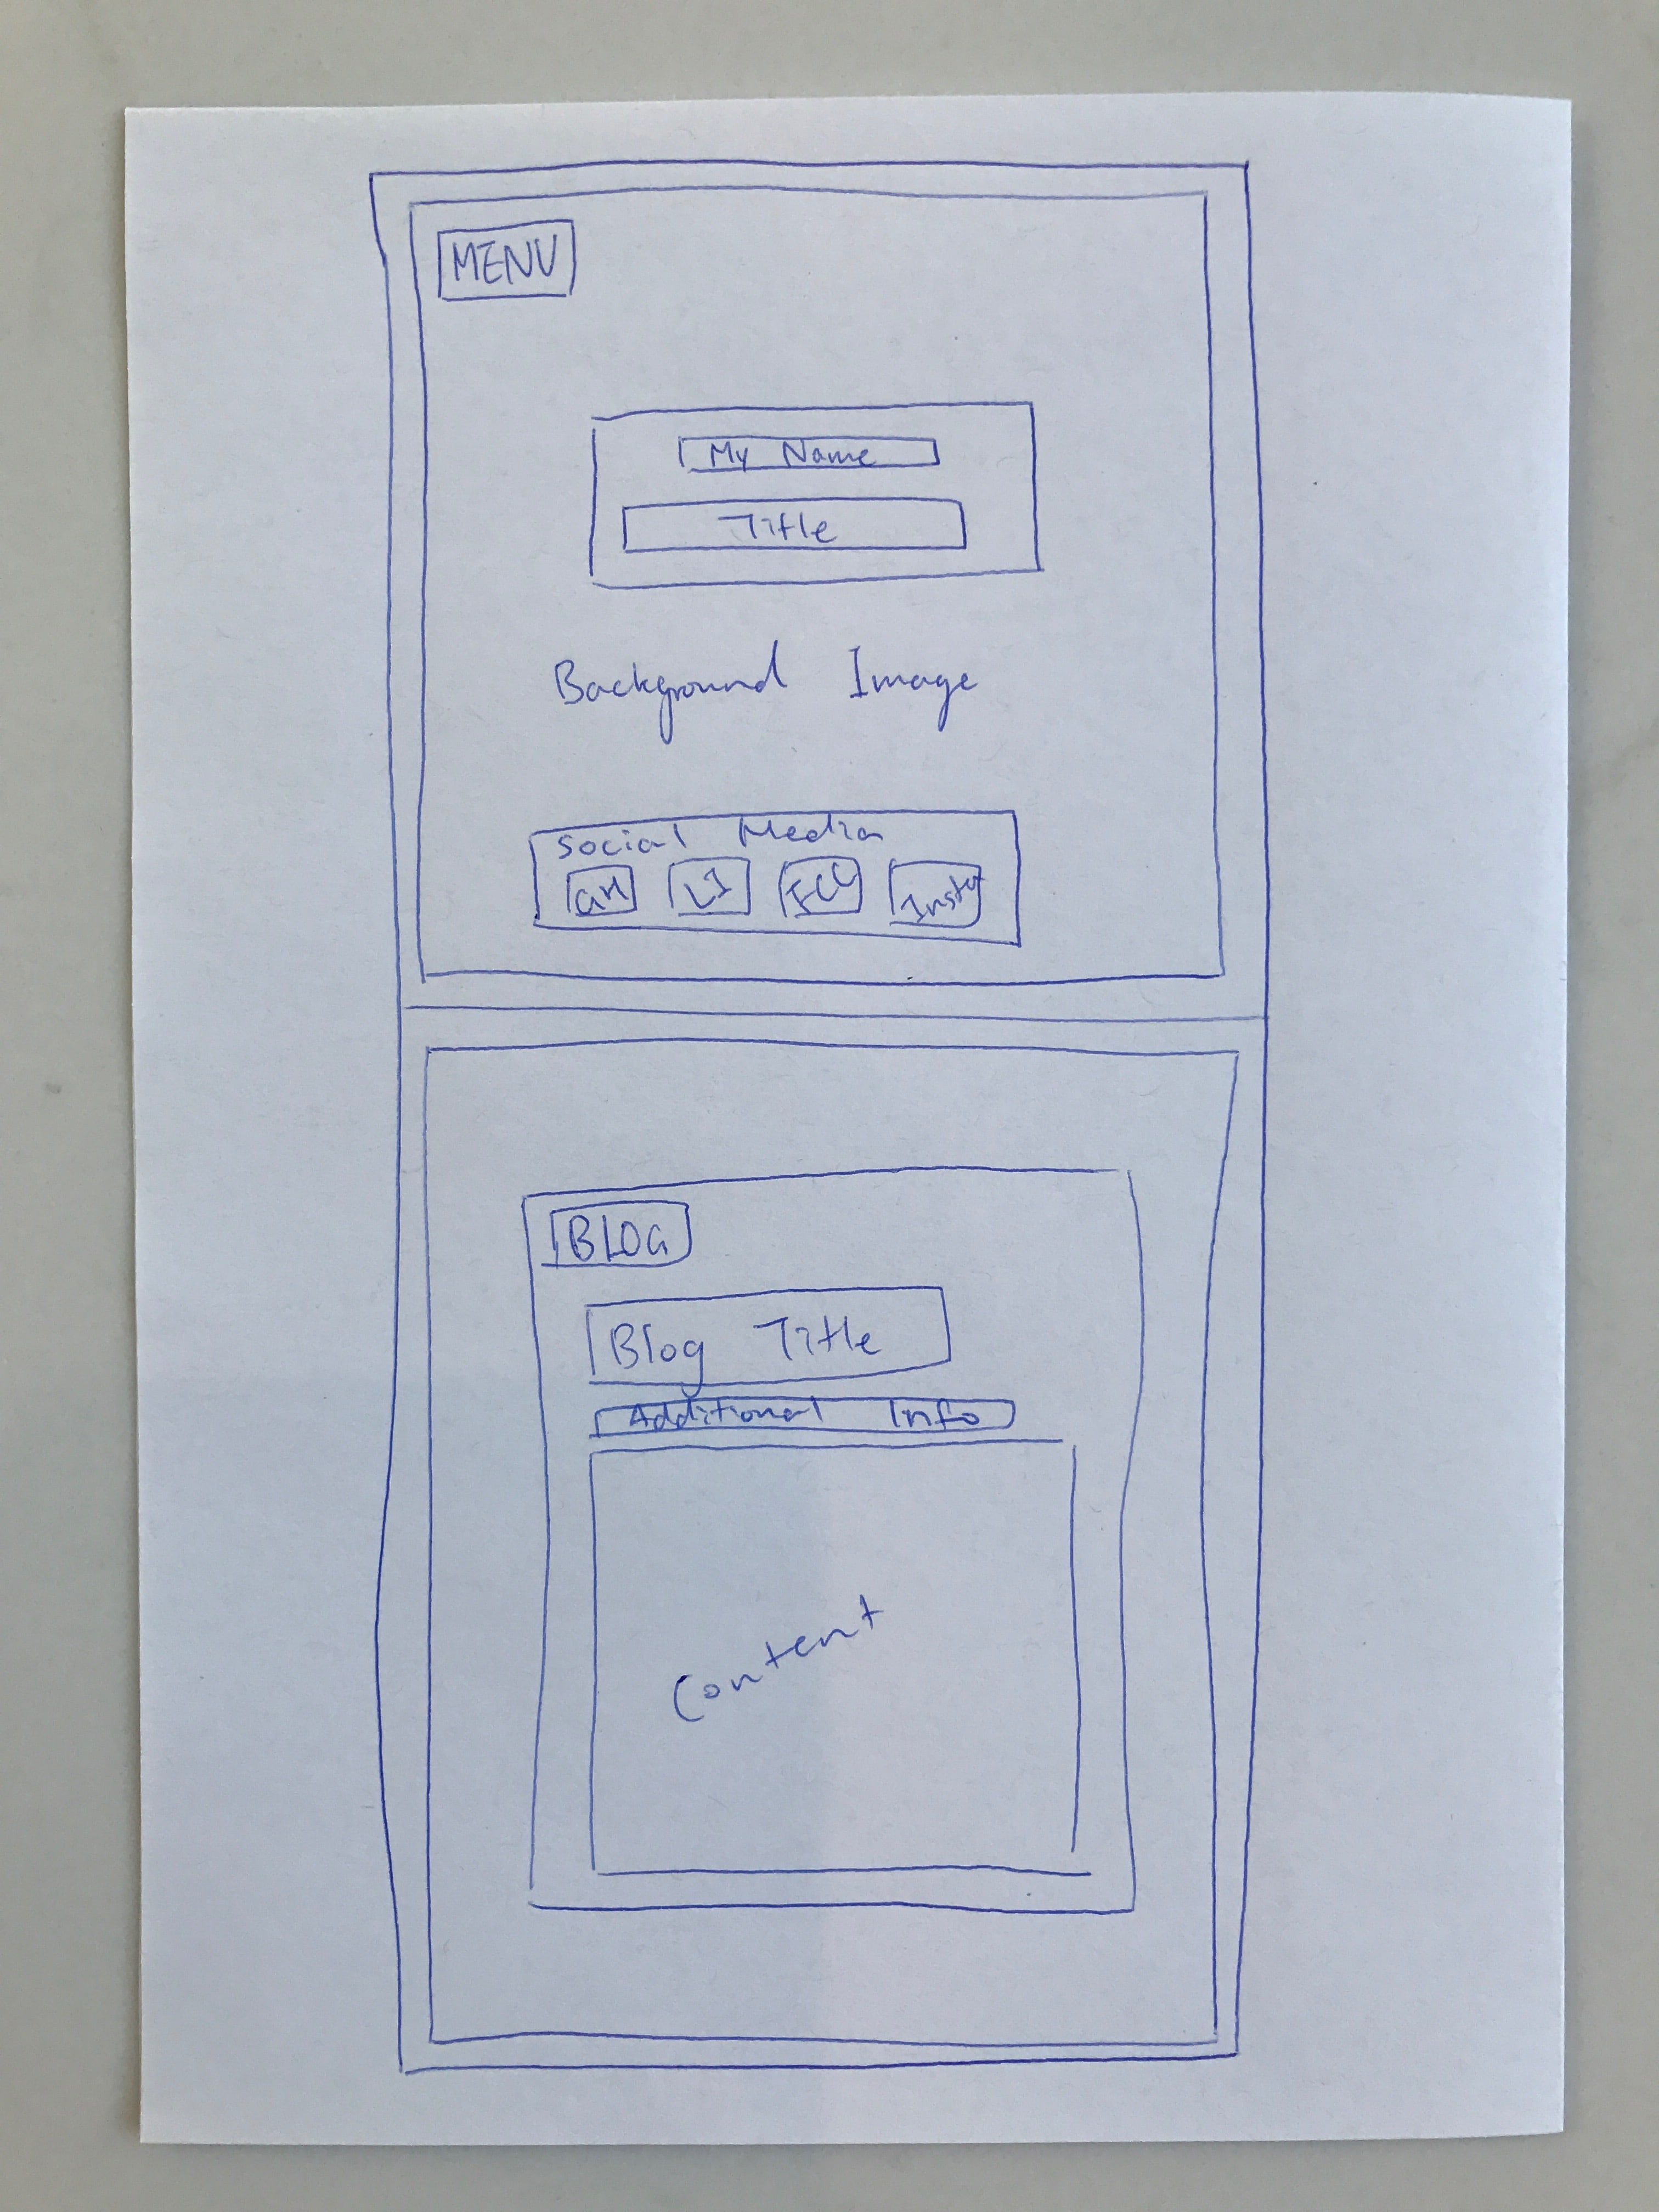 MENU
My Name
Title
Background Image
Social Media
GH LI FCC Insta
BLOG
Blog Title
Additional Info
Content